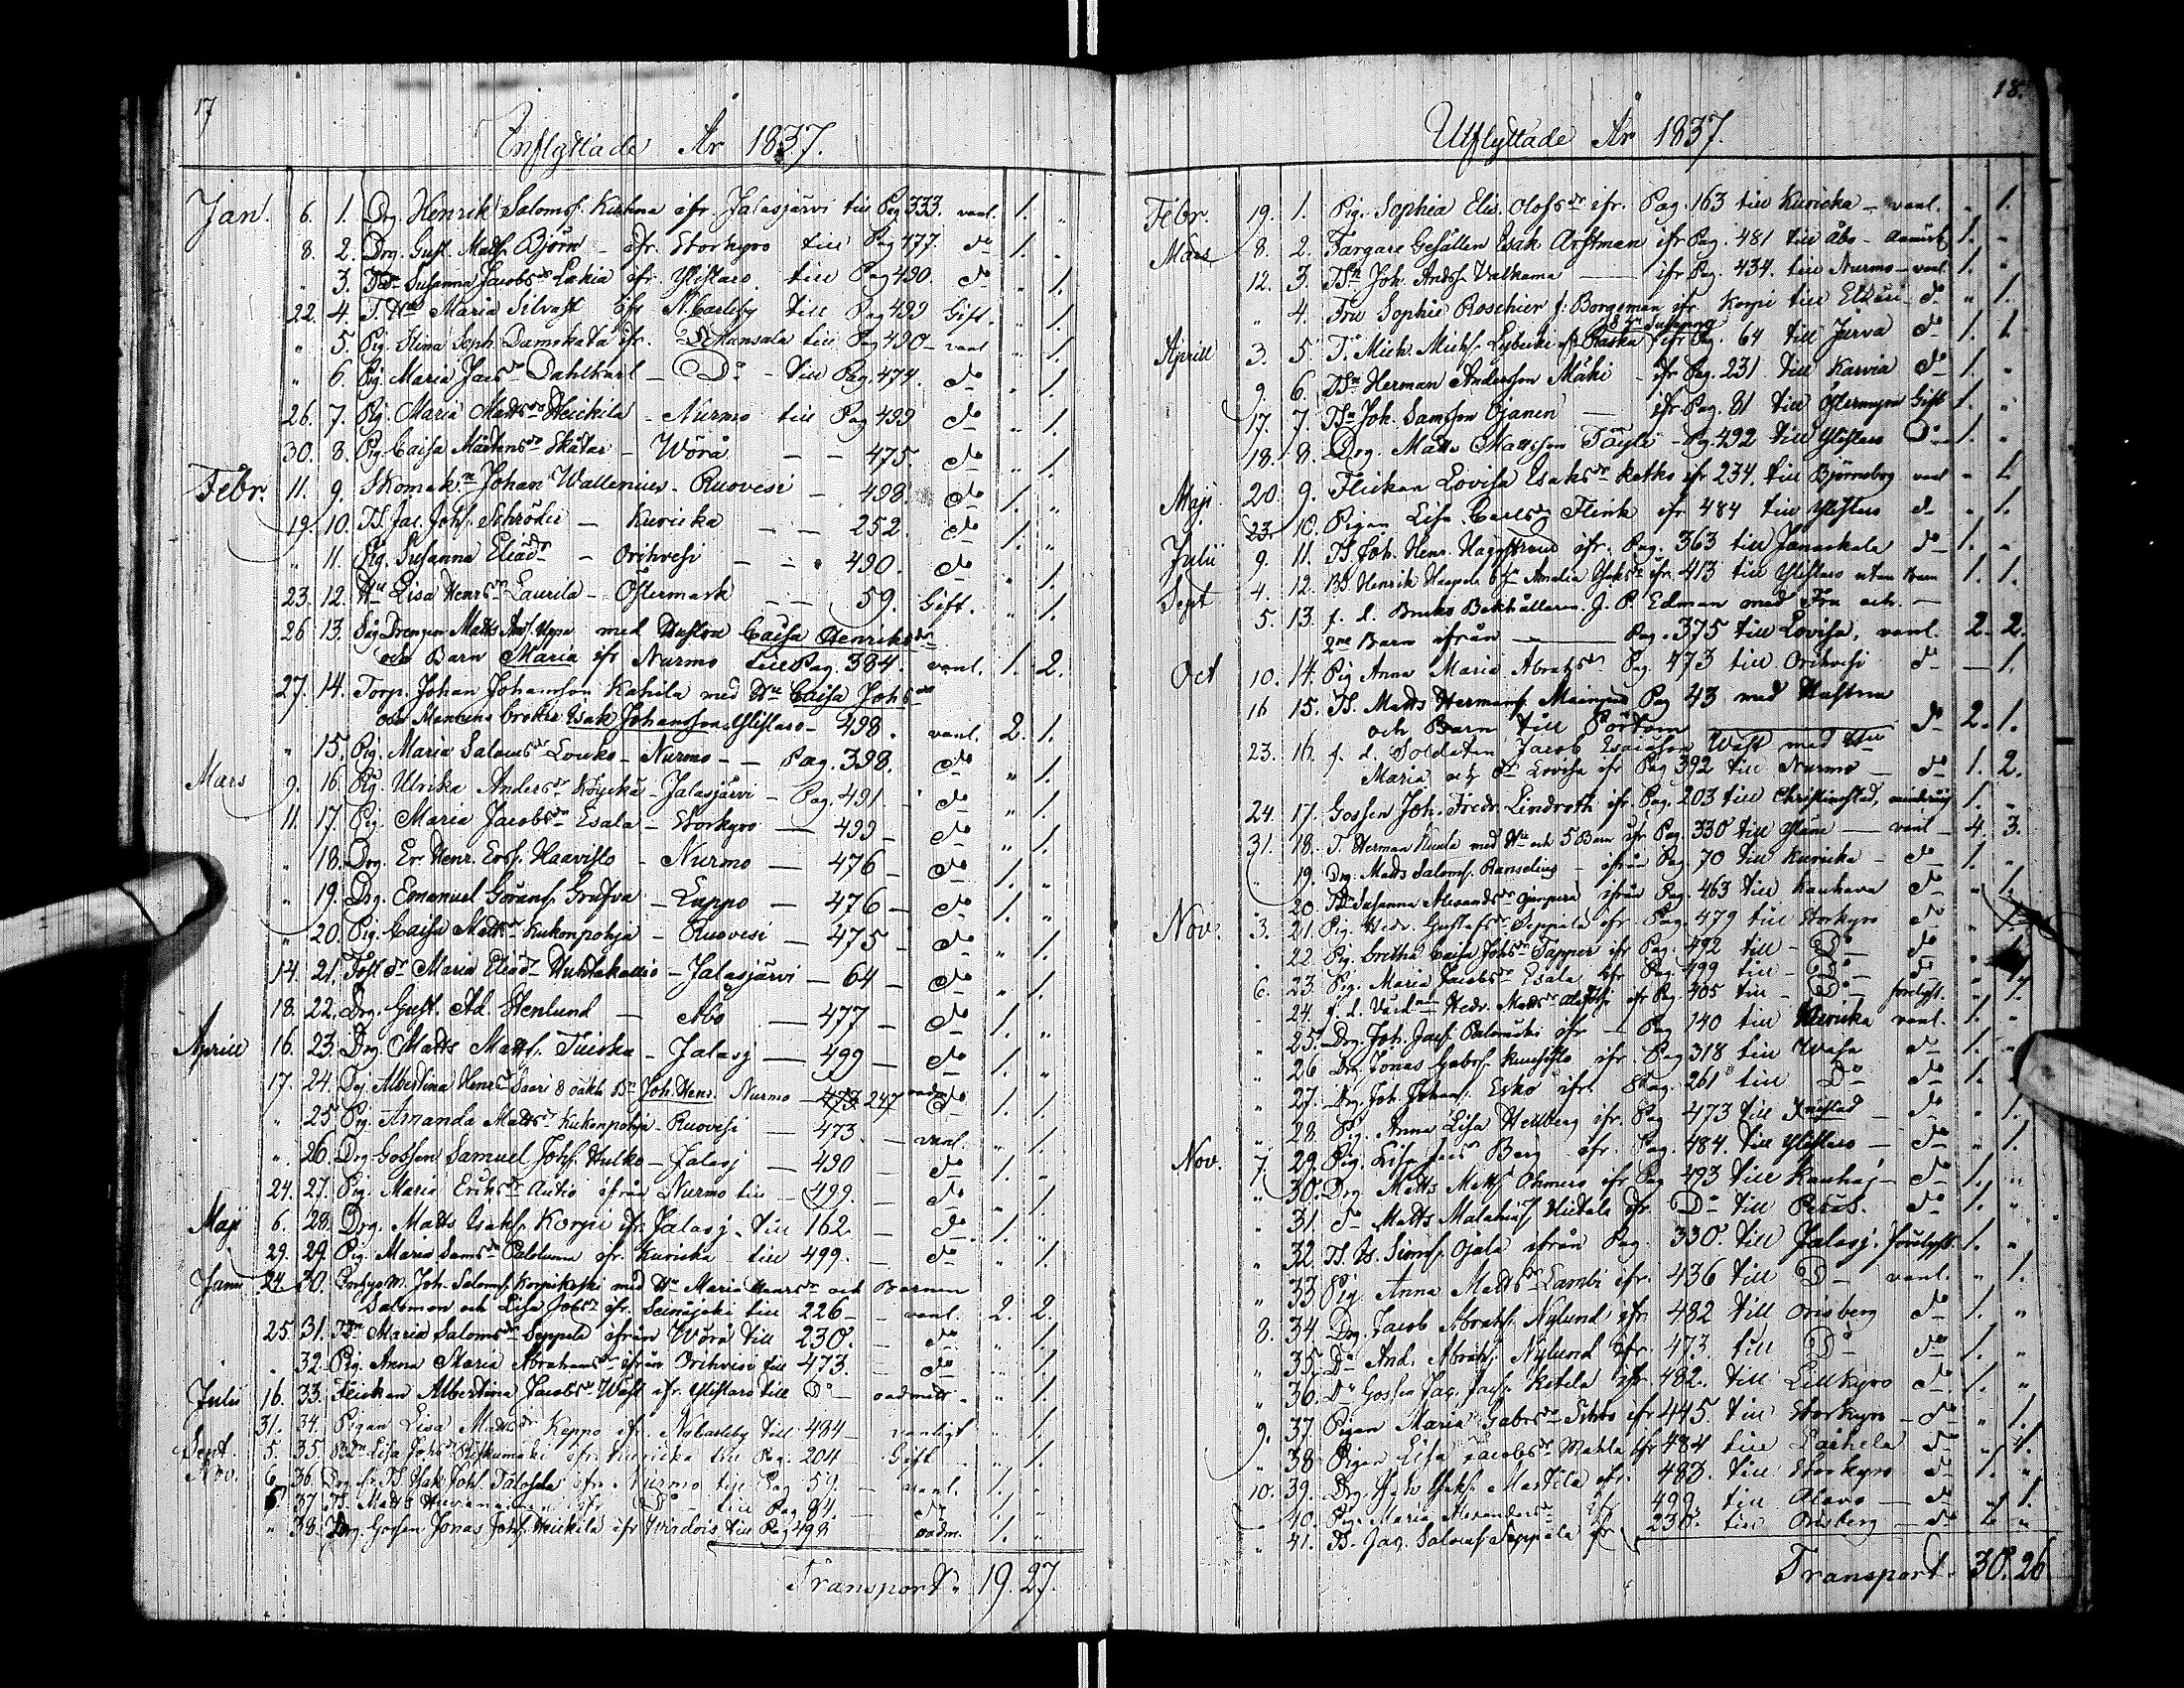 17
Inflyttade År 1837.
Jan. 6. 1. Drg. Henrik Saloms. Kiskma ifr. Jalasjärvi till Pag 333. vanl. 1. "
8. 2. Drg. Gust. Matts. Björn - ifr. Storkyro till Pag 477. do 1. "
" 3. Susanna Jacobsdr Lakia ifr. Ylistaro till Pag 490. do " 1.
22. 4. Maria Silvast ifr N.Carleby till Pag 499 Gift. " 1.
" 5. Pig. Stina Soph. Damskata ifr. till Pag 490 - vanl " 1.
" 6. Pig. Maria Jacsdr Dahlkarl - Do - till Pag. 474. do " 1.
26. 7. Pig. Maria Mattsdr Heickilä - Nurmo till Pag 499 do " 1.
30. 8. Pig. Caisa Mårtensdr Skåtar - Wörå - - 475. do " 1.
Febr. 11. 9. Skomak. Johan Wallenius - Ruovesi - 498. do 1. "
19. 10. Jac. Johs. Schröder - Kuricka - - 252. do 1. "
" 11. Pig. Susanna Eliædr - Orihvesi - - 490. do " 1.
23. 12. Hu Lisa Henrsdr Laurila - Östermark - - 59. Gift. " 1.
26 13. Matts And. Uppa med Hustru Caisa Henriksdr
och Barn Maria ifr Nurmo till Pag. 384. vanl. 1. 2.
27. 14. Torp. Johan Johansson Kahila med Hu Caisa Johsdr
och Mannens broder Isak Johansson Ylistaro - 498. vanl. 2. 1.
" 15. Pig. Maria Salomsdr Louko - Nurmo - - Pag. 398. do " 1.
Mars 9. 16. Pig. Ulrika Andersdr Köyckä - Jalasjärvi - Pag. 491 - do " 1.
11. 17. Pig. Maria Jacobsdr Esala - Storkyro - 499 - do " 1.
" 18. Drg. Er. Henr. Erss. Haavisto - Nurmo - 476 - do 1. "
" 19. Drg. Emanuel Görans. Grafva - Lappo - 476 - do 1. "
" 20. Pig. Caisa Mattsdr Kukonpohja - Ruovesi - 475 - do " 1.
14. 21. Maria Eliædr Huhtakallio - Jalasjärvi - 64 - do " 1.
18. 22. Drg. Gust. Ad. Stenlund - Åbo - 477 - do 1. "
Aprill 16. 23. Drg. Matts Matts. Tuiska - Jalasj - 499 - do 1. "
17. 24. Albertina Henrsdr Saari & oäkta Bn Joh. Henr. Nurmo - 473 247 oadm. do 1. 1.
" 25 Pig. Amanda Mattsdr Kukonpohja - Ruovesi - 473. - vanl. " 1.
" 26. Drg Gossen Samuel Johs. Hulko - Jalasj - 490 - do 1. "
24. 27. Pig. Maria Eriksdr Autio ifrån Nurmo till - 499. - do " 1.
Maji 6. 28. Drg. Matts Isaks. Korpi ifr. Jalasj. till 162. - do 1. "
29. 29. Pig. Maria Samsdr Paloluma ifr. Kuricka till 499. - do " 1.
Junii 24 30. Joh. Saloms. Korpikoski med Hu Maria Henrsdr och Barnen
Salomon och Lisa Johsdr ifr. Seinäjoki till 226 - - vanl. 2. 2.
25. 31. Maria Salomsdr Seppelä ifrån Wörå till 230. - do " 1.
" 32. Pig. Anna Maria Abrahamsdr ifrån Orihvesi till 473. - do " 1.
Julii 16. 33. Flickan Albertina Jacobsdr Wäst ifr. Ylistaro till Do - oadmitt. " 1.
31. 34. Pigan Lisa Mattsdr Keppo ifr. N.Carleby till 484 - vanligt " 1.
Sept. 5. 35. Lisa Johsdr ifr. Kuricka till Pag. 204 - Gift " 1.
Nov. 6. 36 Drg. Isak Johs. ifr. Nurmo till Pag 59. - vanl. 1. "
37 Matts till Pag 84 - do 1. "
" 38. Drg. Gossen Jonas Johs. Heickilä ifr Wirdois till Pag 498 oadm. 1. "
Transport. 19. 27.
18.
Utflyttade År 1837.
Febr. 19. 1. Pig. Sophia Elis. Olofsdr ifr. Pag. 163 till Kuricka - vanl. " 1.
Mars 8. 2. Färgare Gesällen Isak Arstman ifr Pag. 481 till Åbo - 1. "
12. 3. Joh. Ands. Valkama - ifr Pag. 434. till Nurmo - vanl. 1. "
" 4. Fru Sophie Roschier f: Borgeman ifr. Korpi till Etseri - do " 1.
Aprill 3. 5. Mich. Mich. ifr Pag. 64 till Jurva do 1. 1.
9. 6. Herman Andersson Mäki - ifr Pag. 231 till Karvia do 1. "
17. 7. Joh. Samsson Ojanen - ifr Pag. 81 till Östermyra Gift 1. "
18. 8. Drg. Matts Mattsson Täyli - Pag 492 till Ylistaro Do 1. "
Maji 20. 9. Flickan Lovisa Esaksdr Katko ifr 234. till Björneborg vanl " 1.
23. 10. Pigan Lisa Carlsdr Flink ifr 484 till Ylistaro do " 1.
Julii 9. 11. Joh. Henr. Häggstrand ifr. Pag. 363 till Janackala do 1. "
Sept 4. 12. Henrik Amalia ifr. 413 till Ylistaro utan Barn 1. 1.
5. 13. f. d. Bruks Bokhållaren J. P. Edman med Fru och -
2ne Barn ifrån - Pag. 375 till Lovisa, vanl. 2. 2.
Oct 10. 14. Pig Anna Maria Abrahsdr Pag. 473 till Orihvesi do - 1.
16 15. Matts Hermans. Pag 43 med Hustru
och Barn till Pörtom do 2. 1.
23. 16. f. d. Soldaten Jacob Esaiasson Wäst med Hu
Maria och dr Lovisa ifr Pag 392 till Nurmo - do 1. 2.
24. 17. Gossen Joh. Fredr. Lindroth ifr. Pag. 203 till Christinestad, 1. "
31. 18. Herman Kuula med Hu och 5 Barn ifr Pag. 330 till - vanl - 4. 3.
" 19. Drg. Matts Saloms. Ranselius - ifrån Pag. 70 till Kuricka - do 1. "
" 20. Susanna Alexandsdr ifrån Pag. 463 till Kauhava do " 1.
Nov. 3. 21. Pig. Hedv. Gustafsdr Seppälä ifr Pag. 479 till Storkyro do " 1.
" 22. Pig. Gretha Caisa Johsdr Tapper ifr Pag. 492 till - Do - do " 1.
6. 23. Pig. Maria Jacobsdr Esala ifr Pag. 499 till - Do - do " 1.
" 24. f. d. Hedv. Mattsdr ifr Pag. 405 till - Do - " 1.
" 25. Drg. Joh. Jacs. Palomäki ifr - Pag 140 till Kuricka vanl. 1. "
" 26 Drg. Jonas Gabrs. ifr. Pag 318 till Wasa do 1. "
" 27. Drg. Joh. Johans. Esko ifr. Pag. 261 till Do do 1. "
" 28. Pig. Anna Lisa Hellberg ifr. Pag 473 till - do " 1.
Nov. 7. 29. Pig. Lisa Jacsdr Berg ifr. Pag. 484. till Ylistaro - do " 1.
" 30. Drg Matts Matts Ohmero ifr Pag 493 till Kauhaj - do 1. "
" 31. do Matts Malakias Hietala ifr. Do till Peräs. do 1. "
" 32. Is. Simons. Ojala ifrån Pag. 330. till Jalasj. 1. "
" 33 Pig Anna Mattsdr Lambi ifr. 436 till Do - vanl. " 1.
8. 34. Drg. Jacob Abrahs. Nylund ifr. 482 till Orisberg do 1. "
" 35. Do And. Abrahs. Nylund ifr. 473. till Do do 1. "
" 36. Do Gossen Jac. Jacs. Ketela ifr 482. till Lillkyro do. 1. "
9. 37. Pigan Maria Gabrsdr ifr 445. till Storkyro - do " 1.
" 38 Pigan Lisa Jacobsdr Mahla ifr 484 till Laihela do " 1.
10. 39. Drg. Isaks. Marttila ifr. 483. till Storkyro do 1. "
" 40. Pig. Maria Alexandersdr ifr 499. till Alavo - do " 1.
" 41. Jac. Saloms. Seppälä ifr 230. till Orisberg - do 1. "
Transport. 30. 26